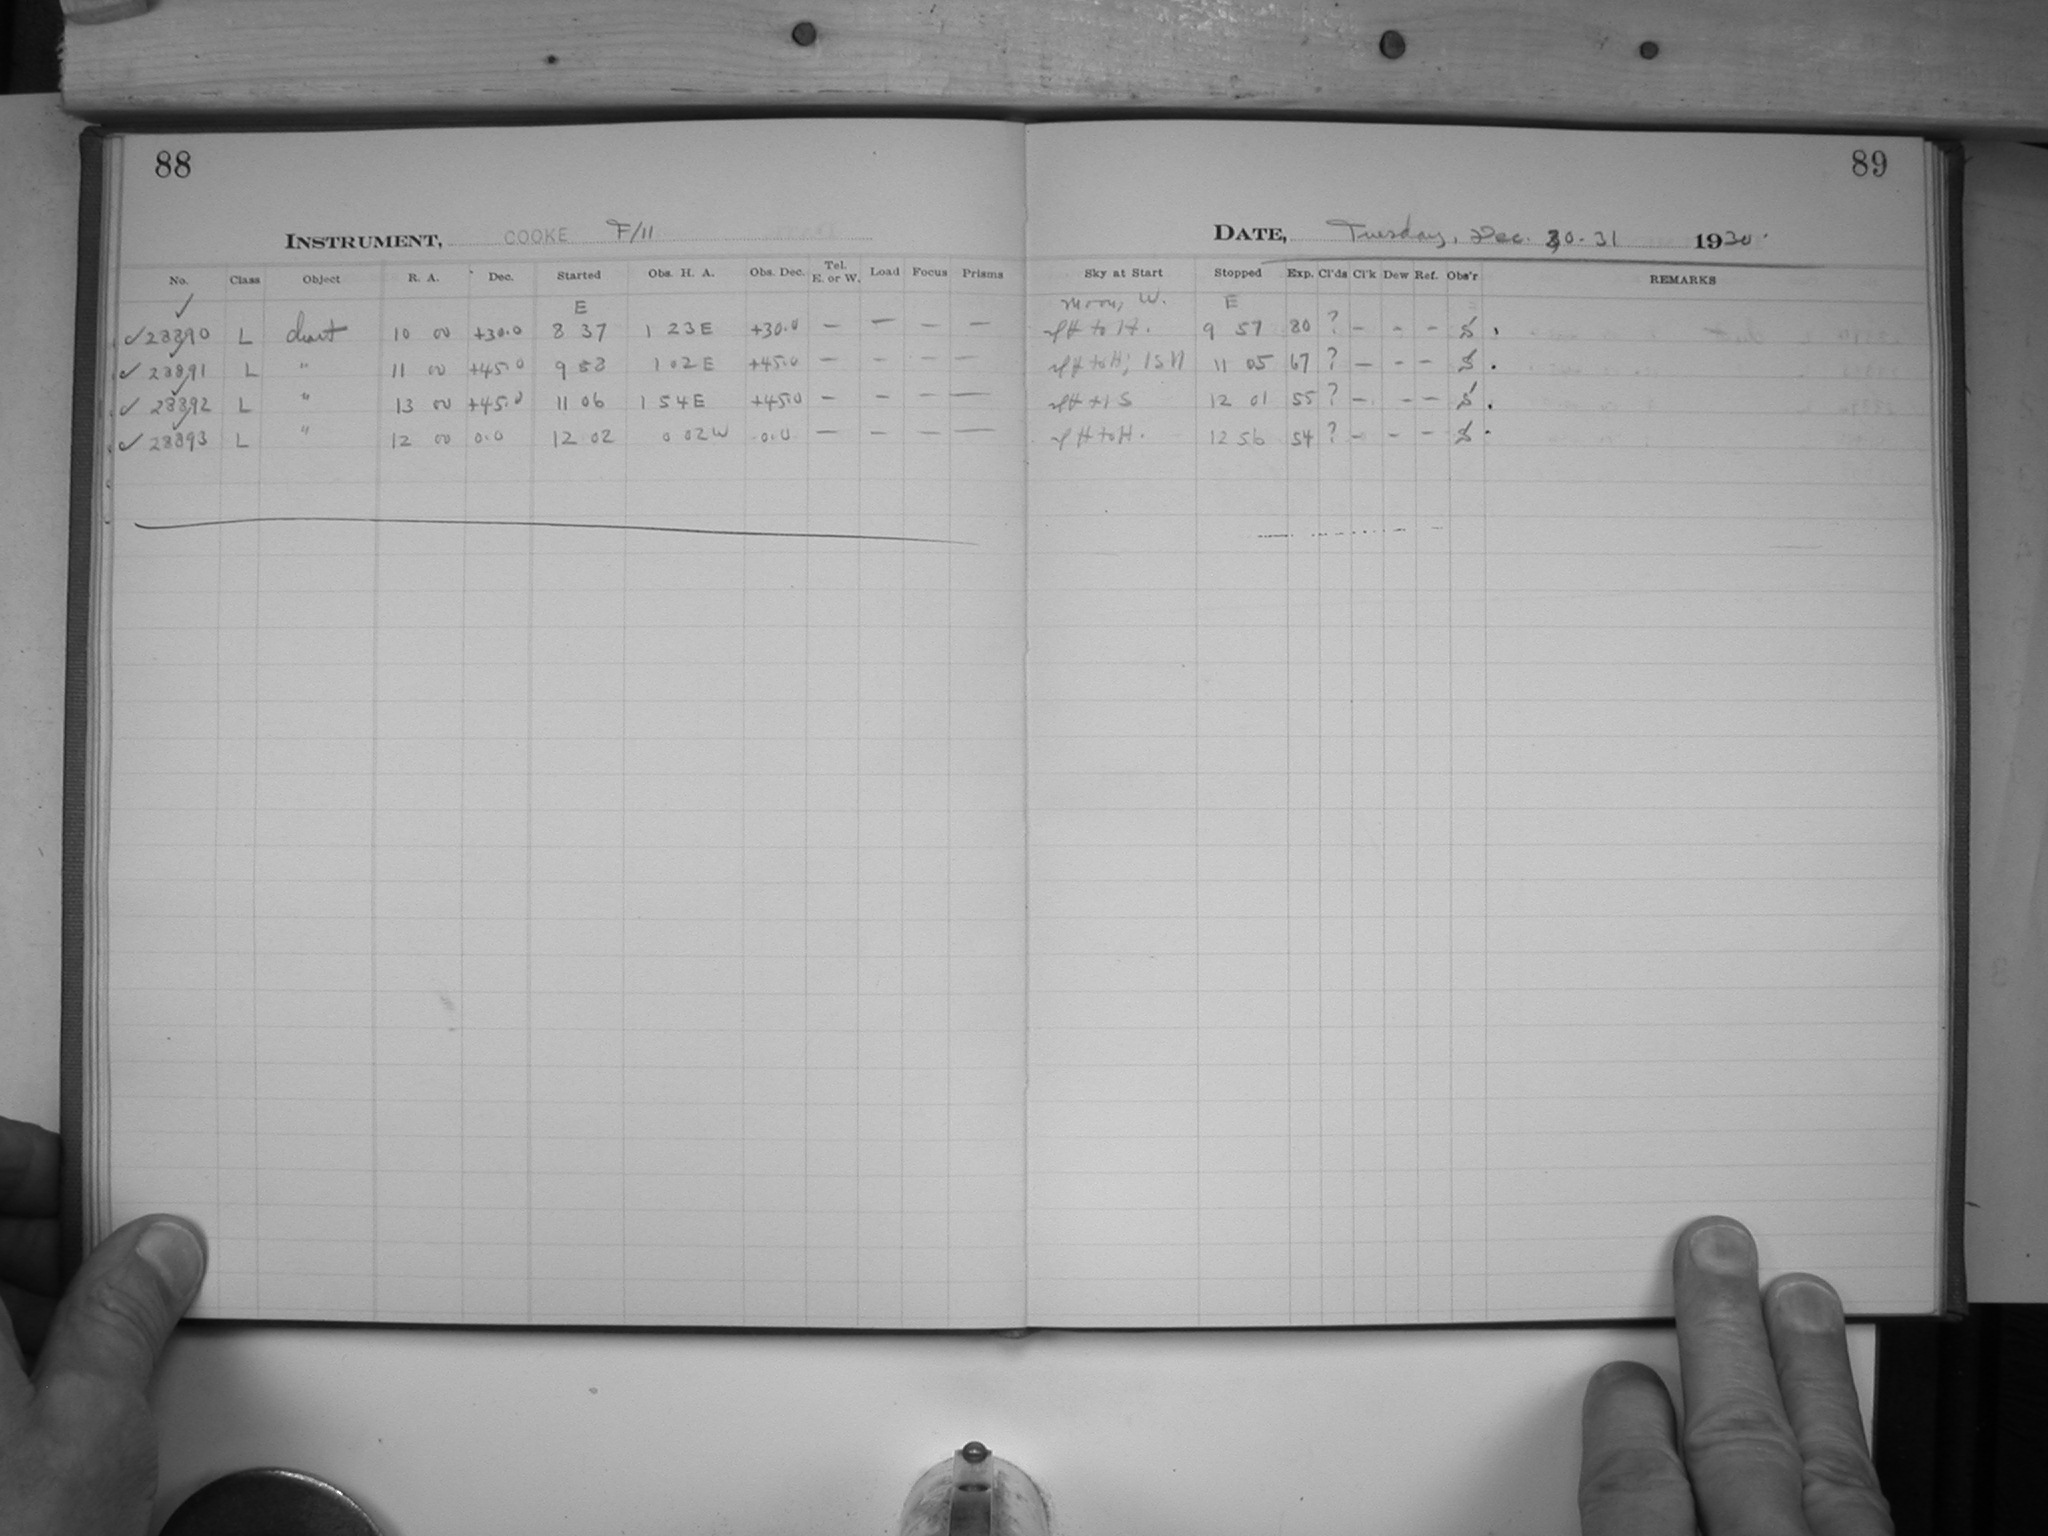 88
INSTRUMENT, COOKE F/11
No. Class Object R. A. Dec. Started Obs. H. A. Obs. Dec. Tel. E. or W. Load Focus Prisms
✓ E
✓ 23390 L chart 10 00 +30.0 8 37 1 23 E +30.0 — — — —
✓ 23391 L " 11 00 +45.0 9 58 1 02 E +45.0 — — — —
✓ 23392 L " 13 00 +45.0 11 06 1 54 E +45.0 — — — —
✓ 23393 L " 12 00 0.0 12 02 0 02 W 0.0 — — — —
89
DATE, Tuesday, Dec. 30-31 1930.
Sky at Start Stopped Exp. Cl'ds Cl'k Dew Ref. Obs'r REMARKS
Moon, W. E
to H. 9 57 80 ? — — —
to H; 11 05 67 ? — — —
12 01 55 ? — — —
to H. 12 56 54 ? — — —